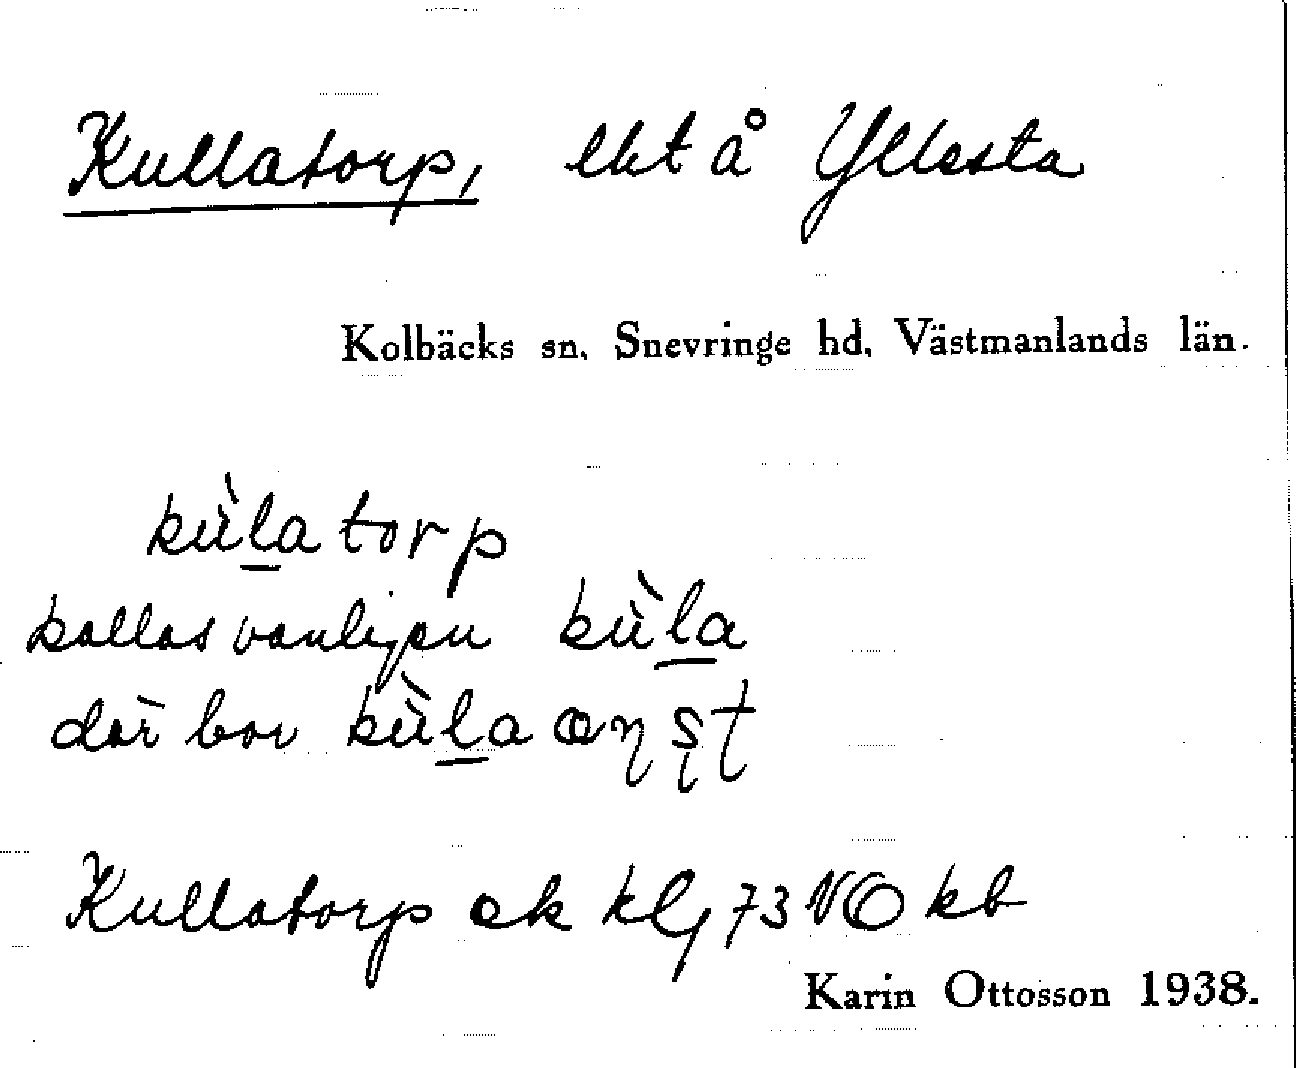 Kullatorp, lht å Yllesta
Kolbäcks sn, Snevringe hd, Västmanlands län.
kùl̲a torp
kallas vanligen kùl̲a
där bor kùl̲a
Kullatorp ek klj 73 NO kb
Karin Ottosson 1938.